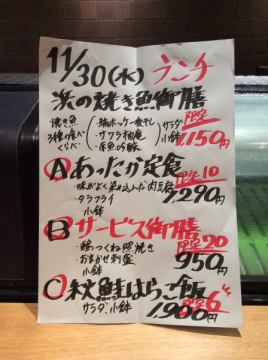 11/30(水) ランチ
浜の焼き魚御膳
焼き魚
3種の食べ
くらべ
・縞ホッケ一夜干し
・サワラ柚庵
・赤魚の味
サラダ
小鉢
限定
1,150円
Aあったか定食
・味がよく染み込んだ肉豆腐
・タラフライ
小鉢
限定10
1,290円
Bサービス御膳
・鶏つくね照焼き
・おまかせ刺盛
小鉢
限定20
950円
C秋鮭はらこ飯
サラダ、小鉢
限定6
1,900円